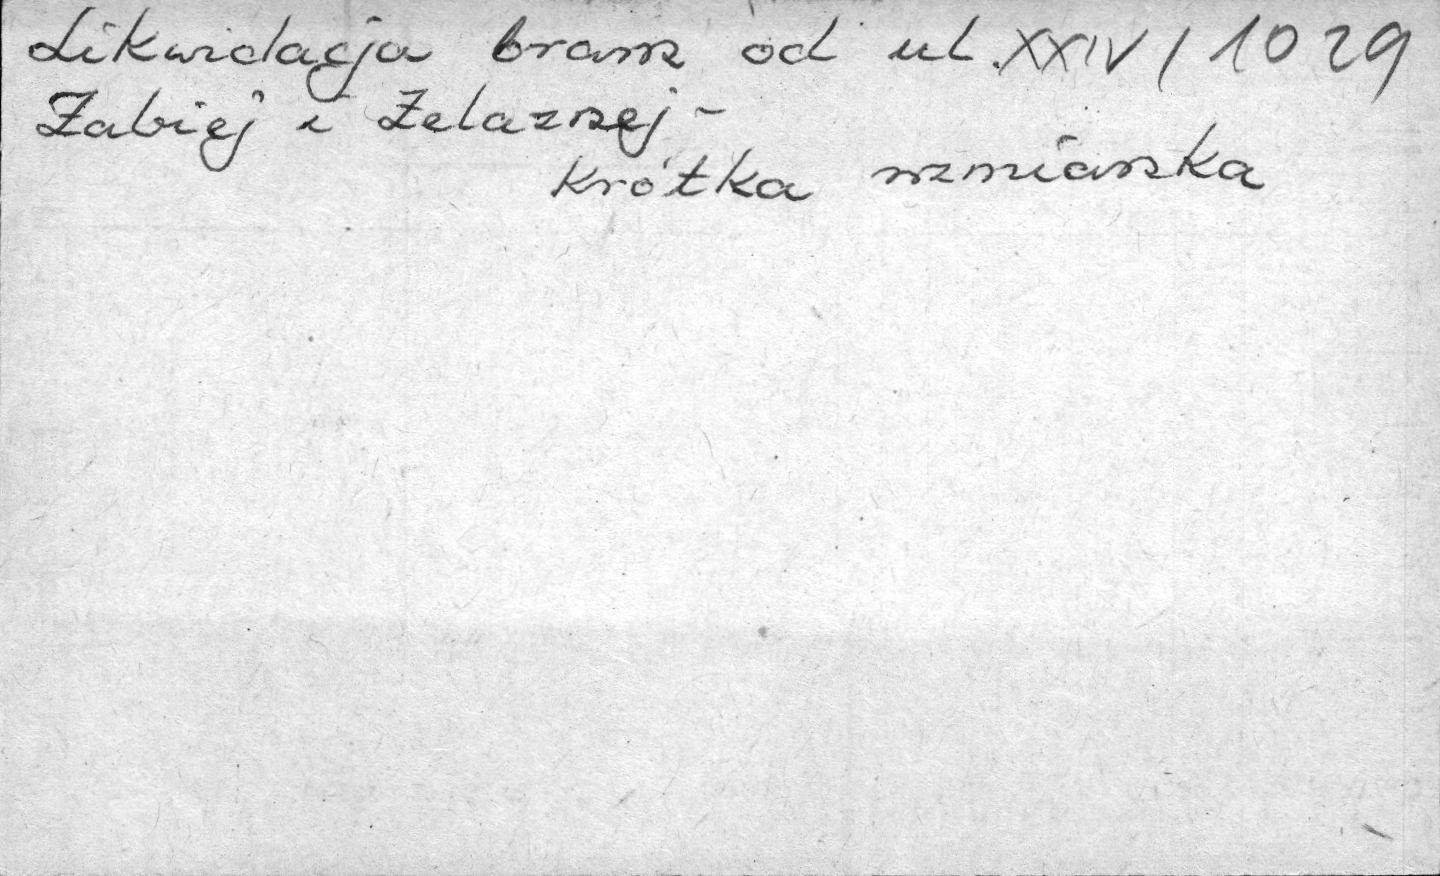 Likwidacja bram od ul. XXIV/1029
Żabiej i Żelaznej -
Krótka wzmianka